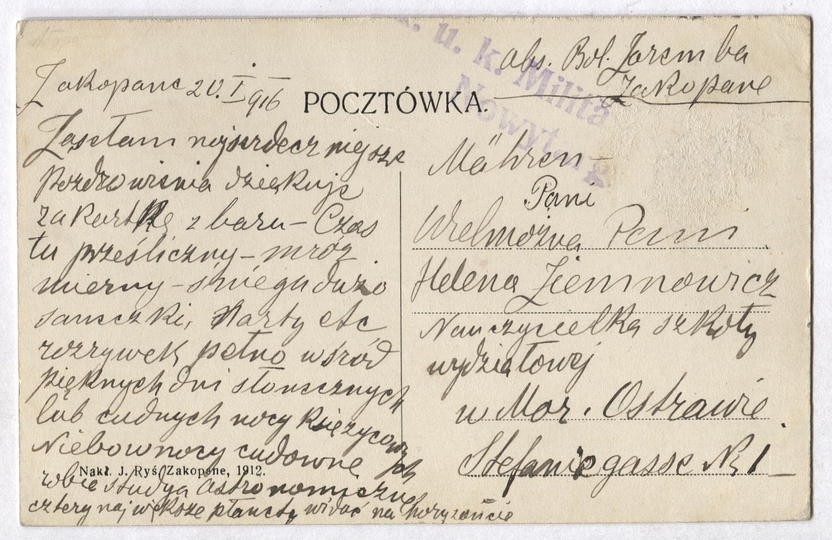 k. u. k. Milita
Nowytarg
abs. Bol. Jaremba
Zakopane
Zakopane 20. I 916
POCZTÓWKA.
Zasełam najserdeczniejsze
pozdrowienia dziękuję
za kartkę z baru – Czas
tu prześliczny – mróz
mierny – śniegu dużo
saneczki, Narty etc
rozrywek pełno wśród
pięknych dni słonecznych
lub cudnych nocy księżycowych
Niebo w nocy cudowne
robię studya astronomiczne
cztery największe planety widać na horyzoncie
Nakł. J. Ryś, Zakopane, 1912.
Mähren –
Pani
Wielmożna Pani
Helena Ziemnowicz
Nauczycielka szkoły
wydziałowej
w Mor. Ostrawie
Stefaniegasse Nr 1